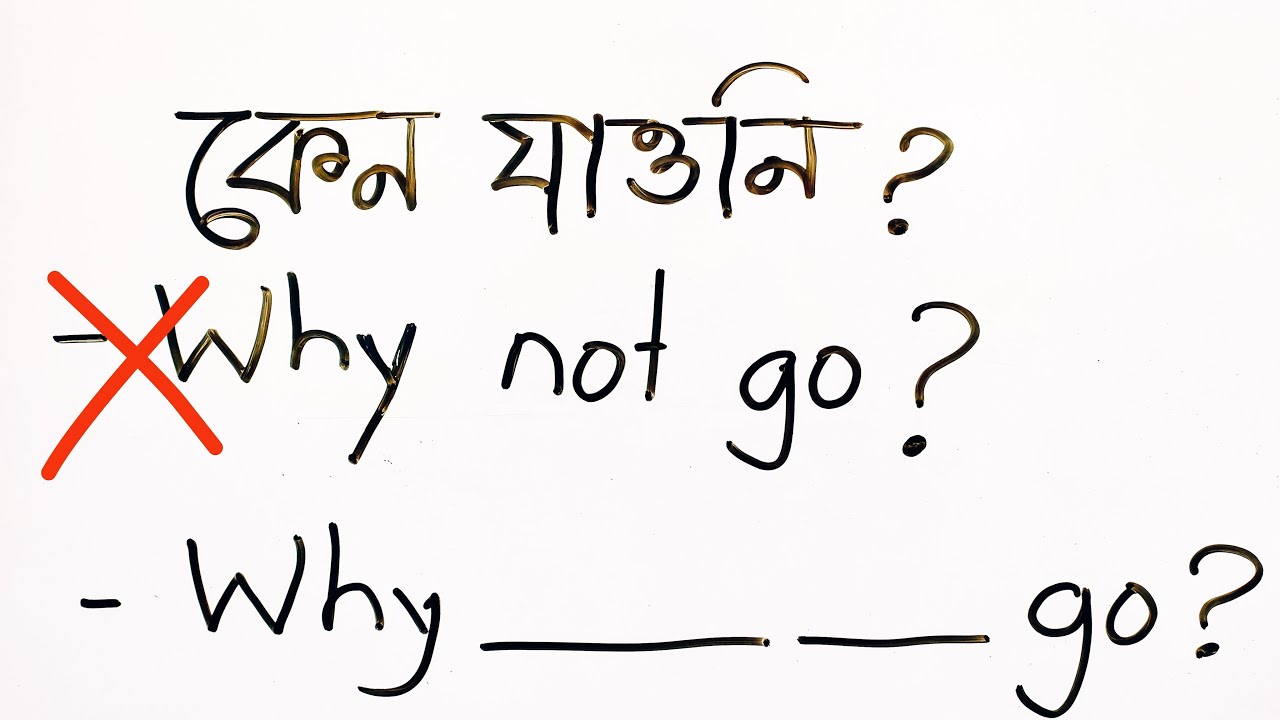 কেন যাওনি ?
- Why not go?
- Why ____ ___ go?